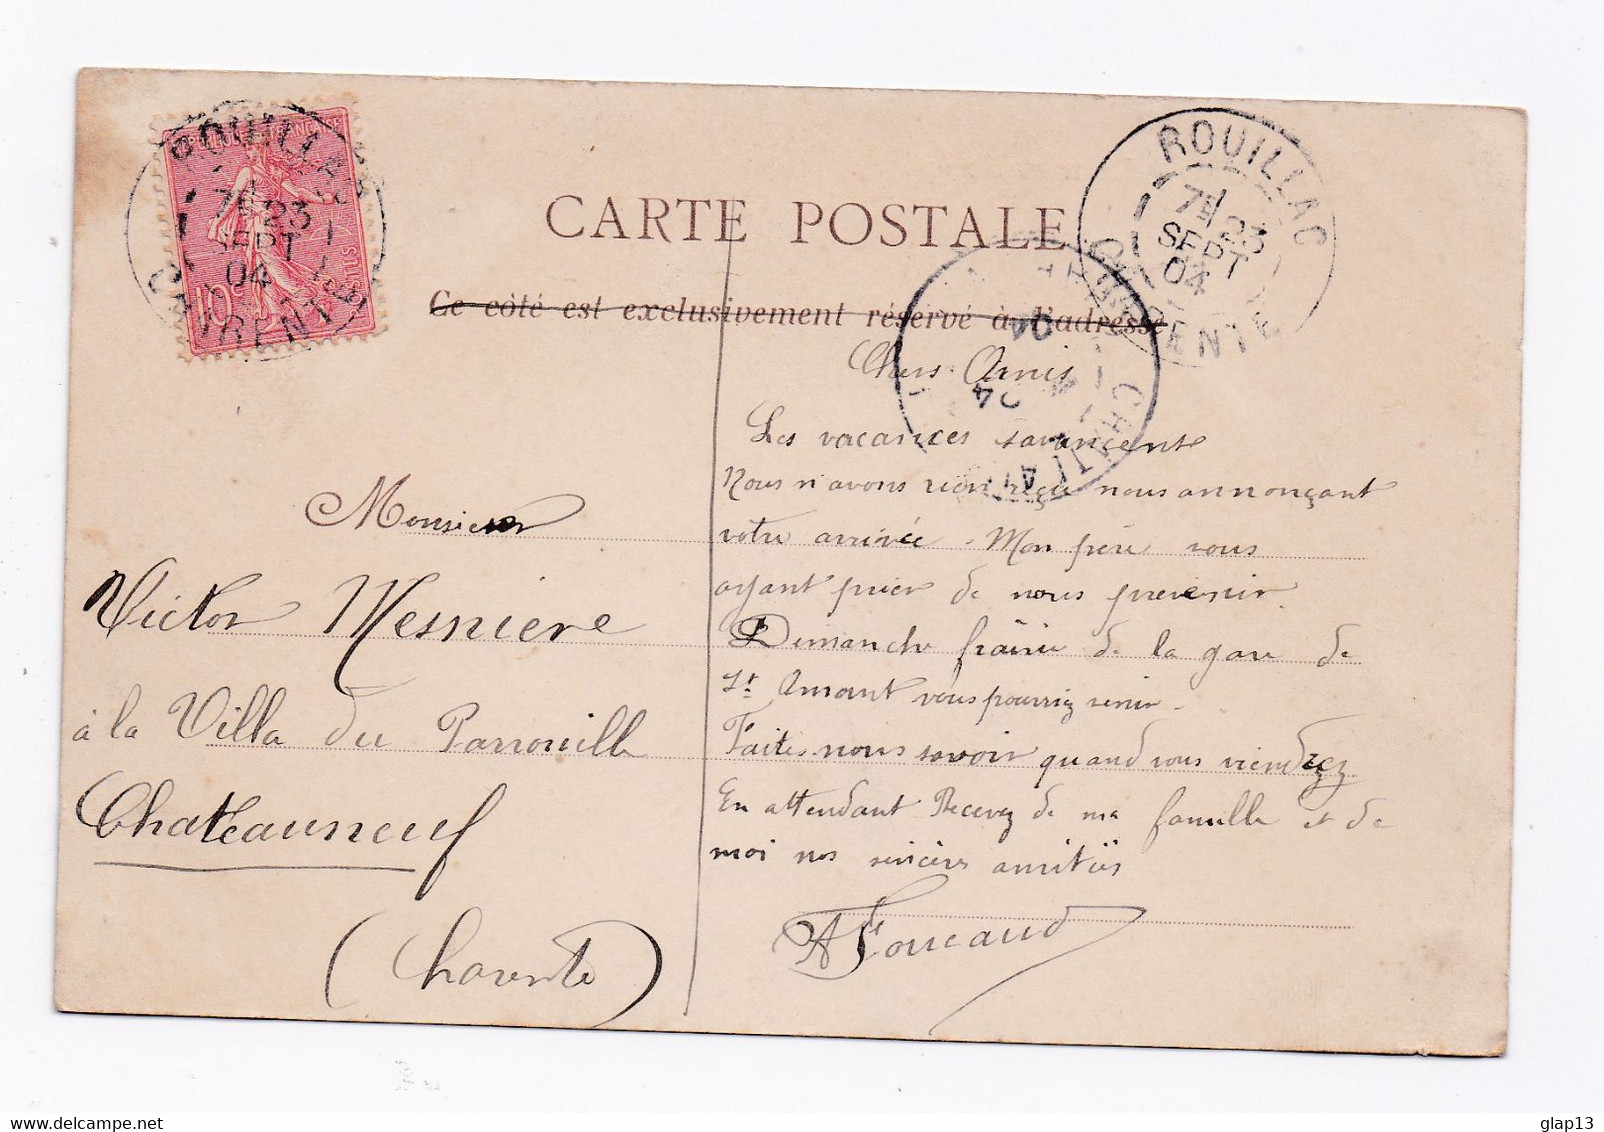 CARTE POSTALE
Ce côté est exclusivement réservé à l'adresse
RÉPUBLIQUE FRANÇAISE
POSTES
10c
ROUILLAC
7E 23
SEPT
04
CHARENTE
ROUILLAC
7E 23
SEPT
04
CHARENTE
Monsieur
Victor Mesniere
à la Villa du Parrouille
Chateauneuf
(Charente)
Chers Amis
Les vacances s'avancente
Nous n'avons rien reçu nous annonçant
votre arrivée - Mon père vous
ayant prier de nous prévenir.
Dimanche frairie de la gare de
St Amant vous pourriez venir -
Faites nous savoir quand vous viendrez
En attendant Recevez de ma famille et de
moi nos sincères amitiés
A Foucaud
glap13